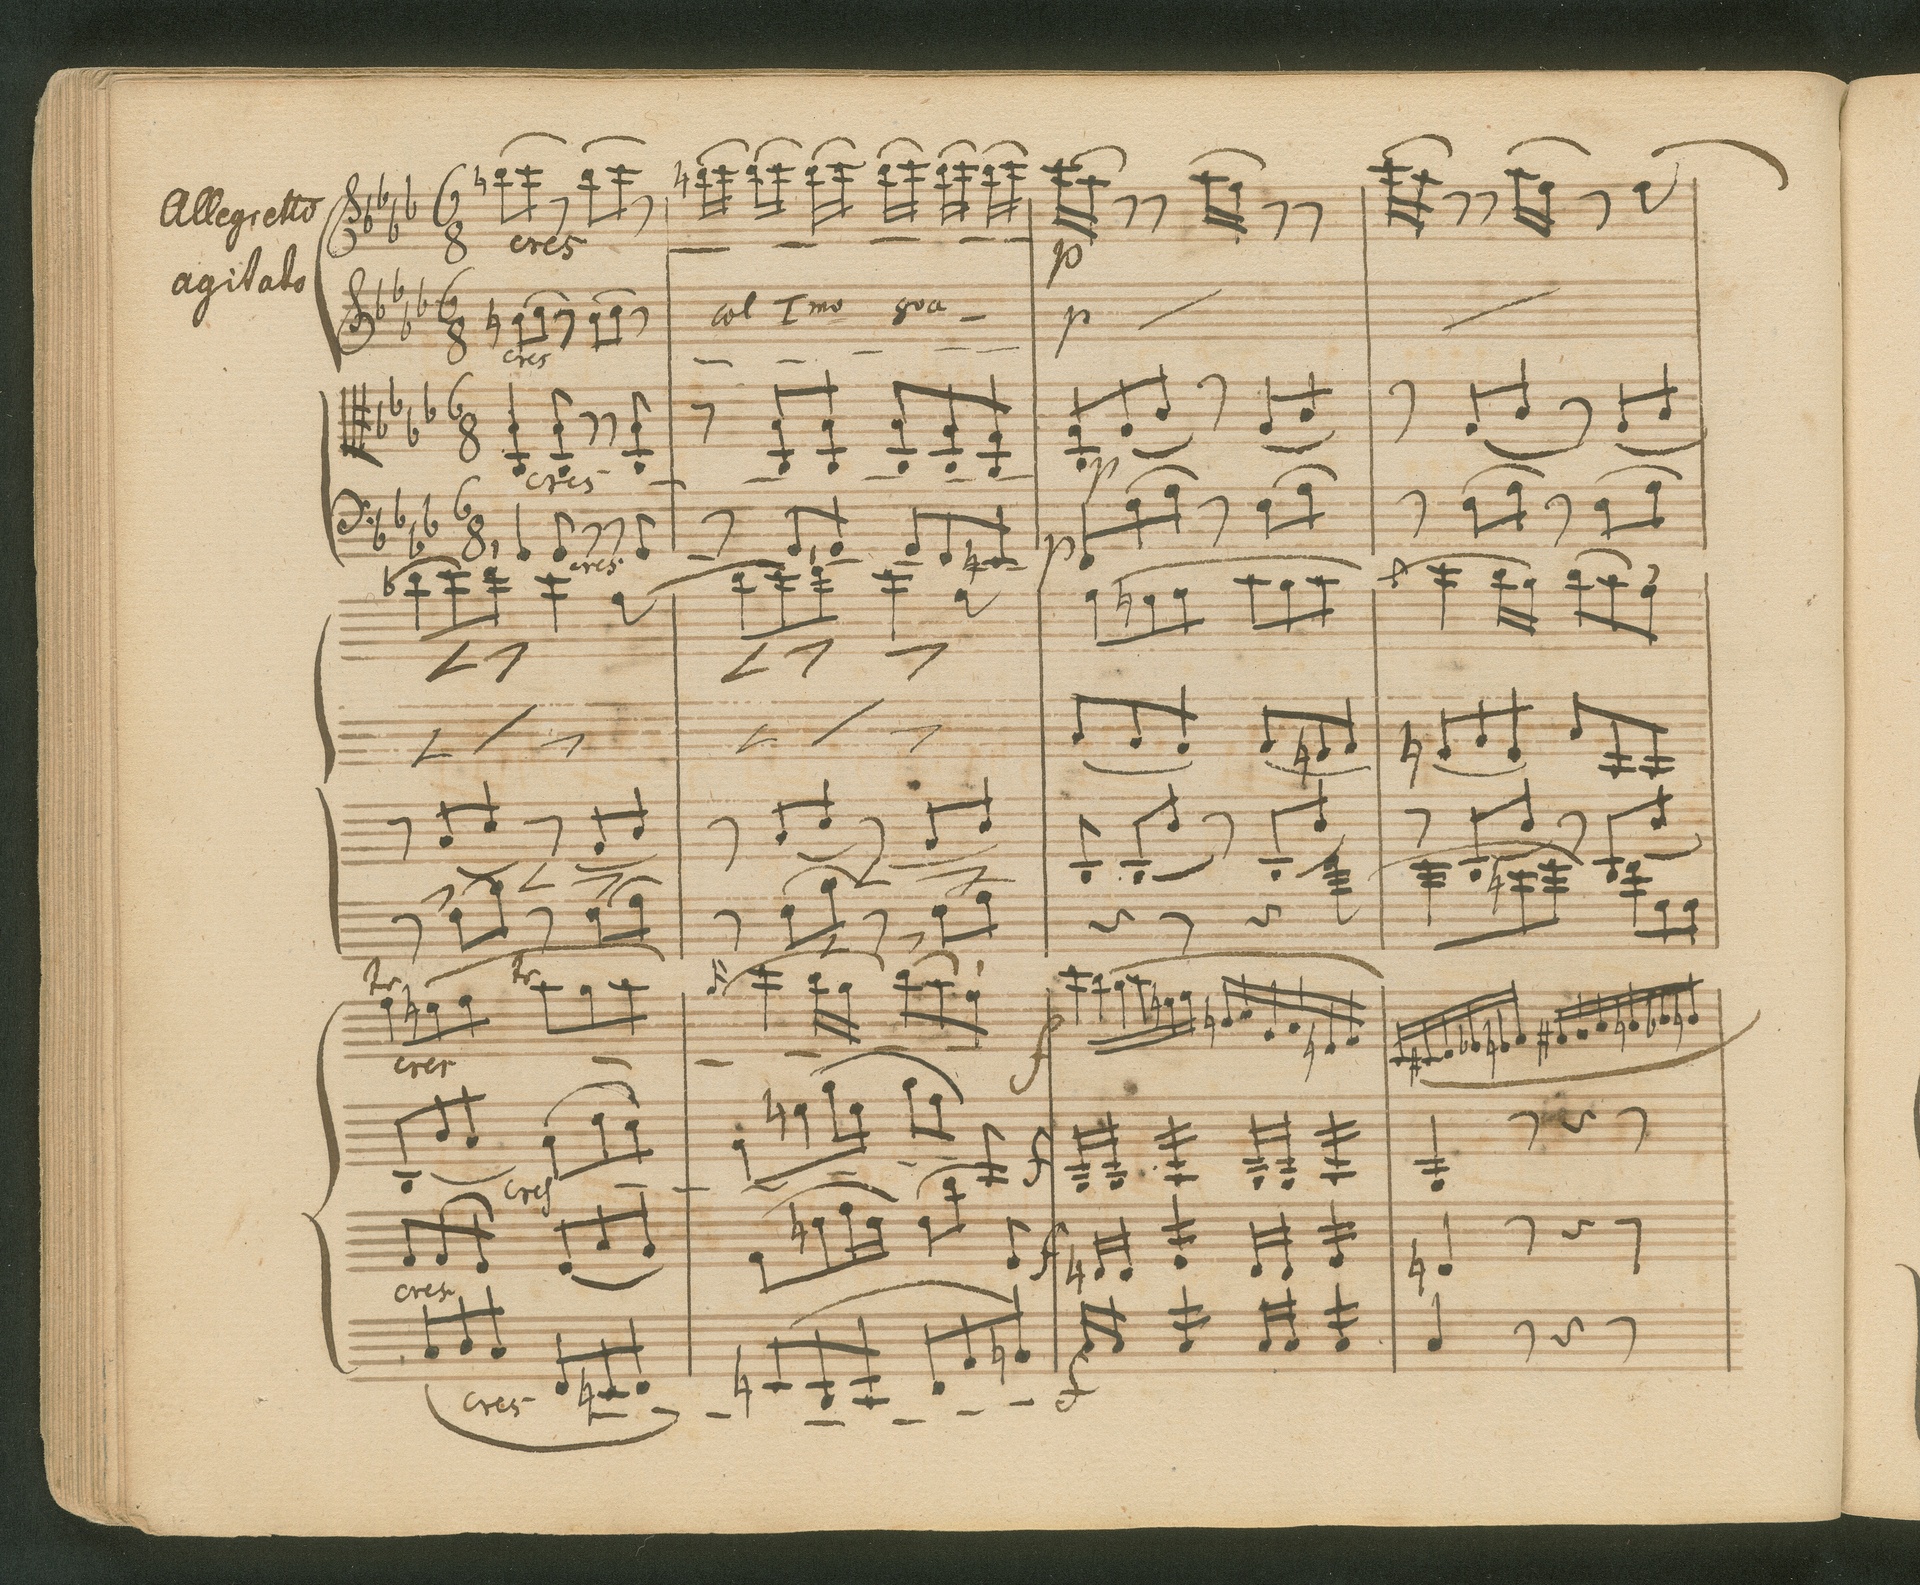 Allegretto
agitato
6
8
cres
p
6
8
cres
col Imo 8va
p
6
8
cres
p
6
8
cres
p
tr
tr
cres
f
cres
f
cres
f
cres
f